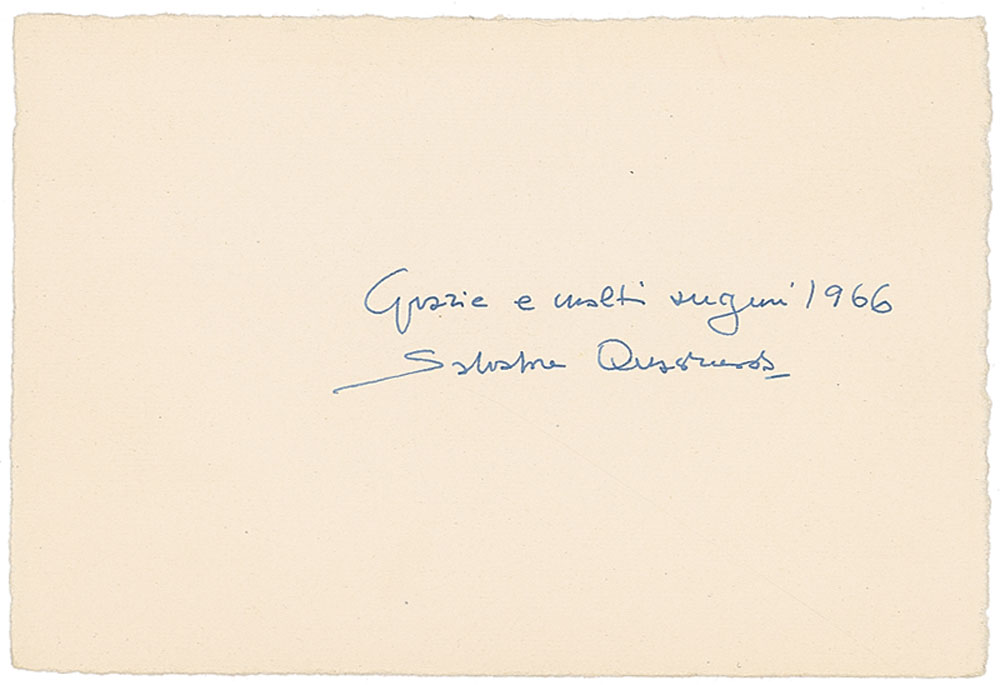 Grazie e molti auguri 1966
Salvatore Quasimodo